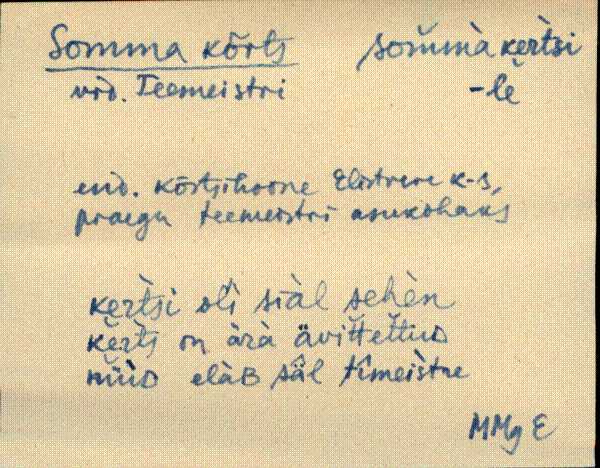 Somma kõrts sommà kertsi
vrd. Teemeistri -le
end. kõrtsihoone Elistvere k-s,
praegu teemeistri asukohaks
kertsi oli siàl sehèn
kerts on ärà ävittettuD
nüüD elàB säl tîmeistre
MMg E